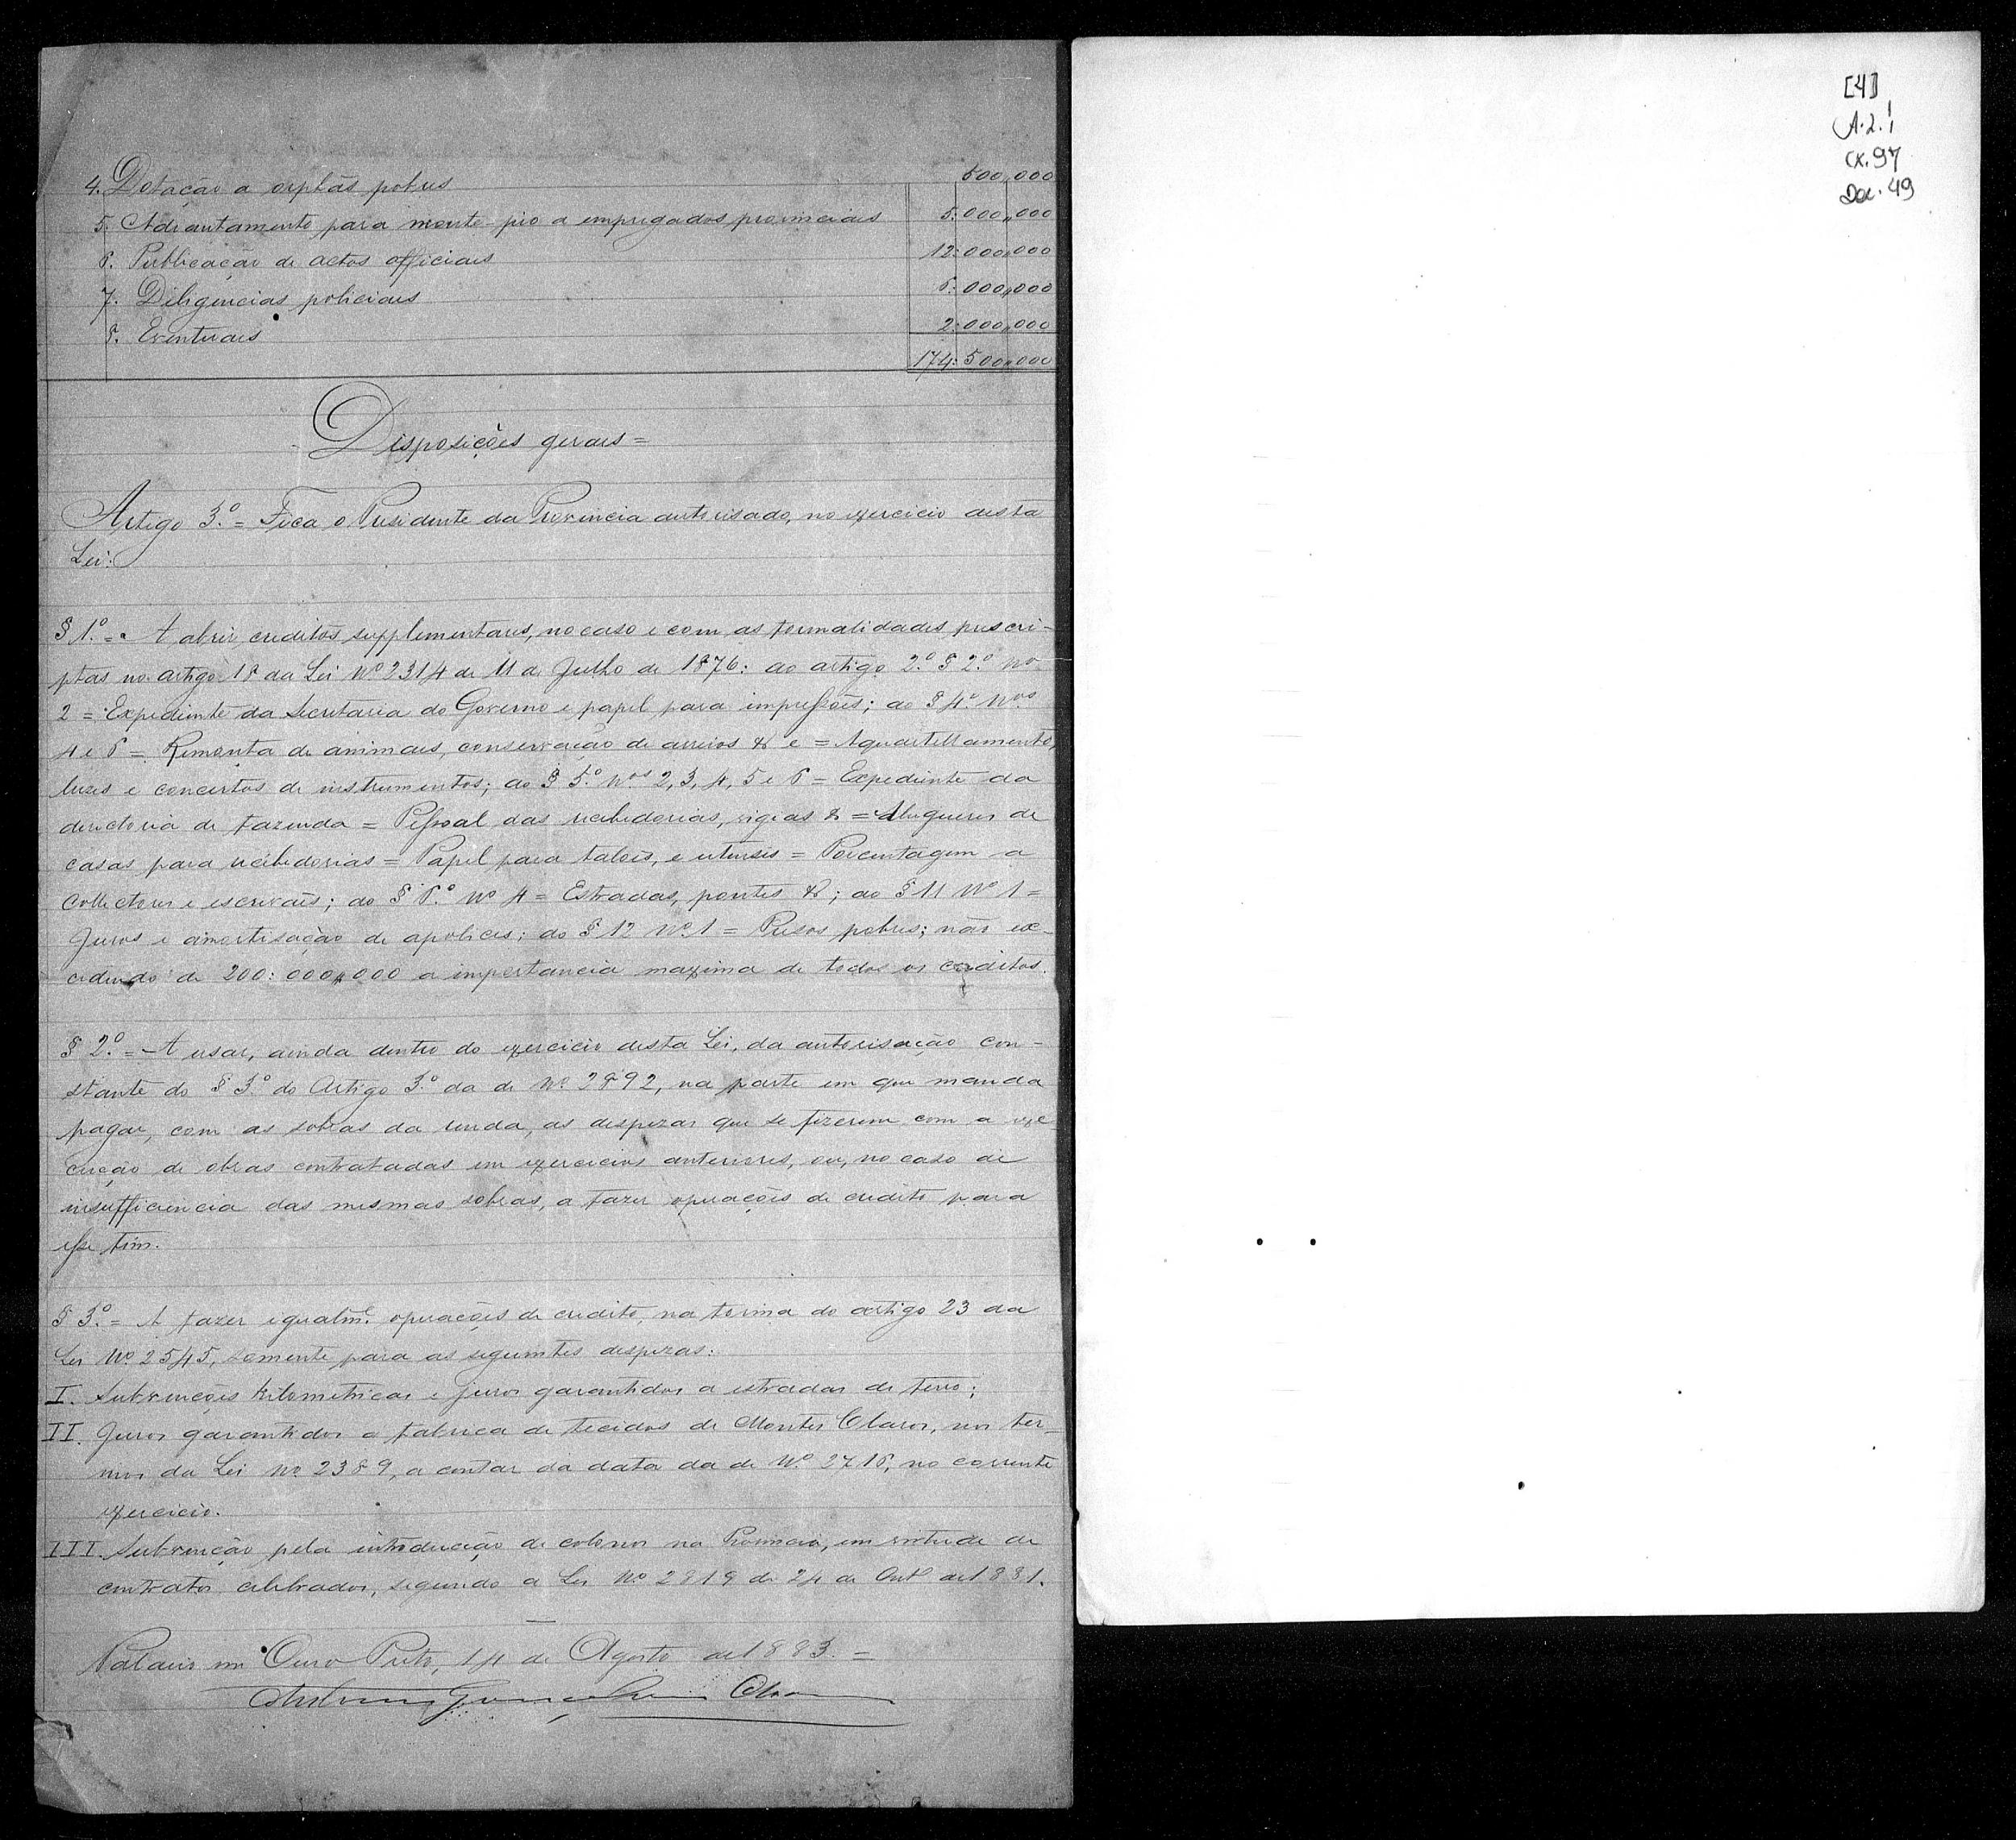 4. Dotação a orphãs pobres 500,000
5. Adiantamento para monte-pio a empregados provinciais 5:000,000
6. Publicação de actos officiaes 12:000,000
7. Diligencias policiaes 6:000,000
8. Eventuaes 2:000,000
174:500,000
Disposições geraes =
Artigo 3.º = Fica o Presidente da Provincia autorisado, no exercicio desta
Lei:
§ 1.º = A abrir creditos supplementares, no caso e com as formalidades prescri-
ptas no artigo 18 da Lei Nº 2314 de 11 de Julho de 1876: ao artigo 2.º § 2.º nº
2 = Expediente da Secretaria do Governo e papel para impressões; ao § 4.º Nos
4 e 6 = Remonta de animaes, conservação de arreios & e = Aquartellamento,
luzes e concertos de instrumentos; ao § 5.º nos 2, 3, 4, 5 e 6 = Expediente da
directoria de fazenda = Pessoal das recebedorias, vigias & = Alugueres de
casas para recebedorias = Papel para talões, e utensis = Porcentagem a
Collectores e escrivães; ao § 6.º Nº 4 = Estradas, pontes &; ao § 11 Nº 1 =
Juros e amortisação de apolices; ao § 12 Nº 1 = Presos pobres; não ex-
cedendo de 200:000,000 a importancia maxima de todos os creditos.
§ 2.º = A usar, ainda dentro do exercicio desta Lei, da autorisação con-
stante do § 3.º do Artigo 3.º da de Nº 2892, na parte em que manda
pagar, com as sobras da renda, as despezas que se fizerem com a exe-
cução de obras contratadas em exercicios anteriores, ou, no caso de
insufficiencia das mesmas sobras, a fazer operações de credito para
esse fim.
§ 3.º = A fazer igualm.e operações de credito, na forma do artigo 23 da
Lei Nº 2545, somente para as seguintes despezas:
I. Subvenções kilometricas e juros garantidos a estradas de ferro;
II. Juros garantidos a fabrica de tecidos de Montes Claros, nos ter-
mos da Lei Nº 2389, a contar da data da de Nº 2716, no corrente
exercicio.
III. Subvenção pela introducção de colonos na Provincia, em virtude de
contratos celebrados, segundo a Lei Nº 2819 de 24 de Out.º de 1881.
Palacio em Ouro Preto, 14 de Agosto de 1883. =
[4]
A.2.1
Cx.97
Doc. 49